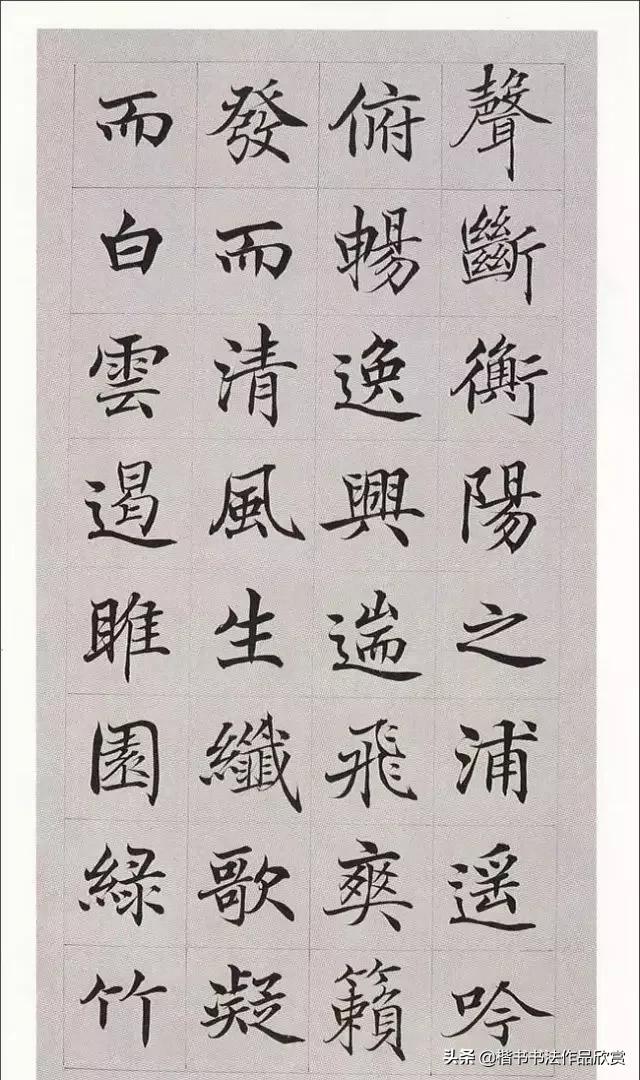 聲斷衡陽之浦遥吟
俯暢逸興遄飛爽籟
發而清風生纖歌凝
而白雲遏睢園緑竹
头条 @楷书书法作品欣赏